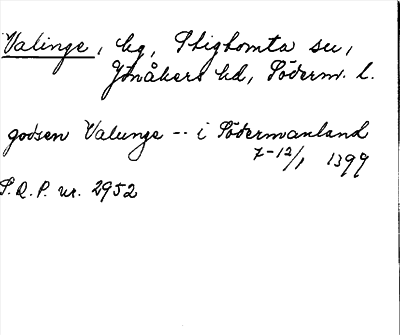 Valinge, by, Stigtomta sn,
Jönåkers hd, Söderm. l.
godsen Valunge -- i Södermanland
7-12/1 1399
S.R.P. nr. 2952